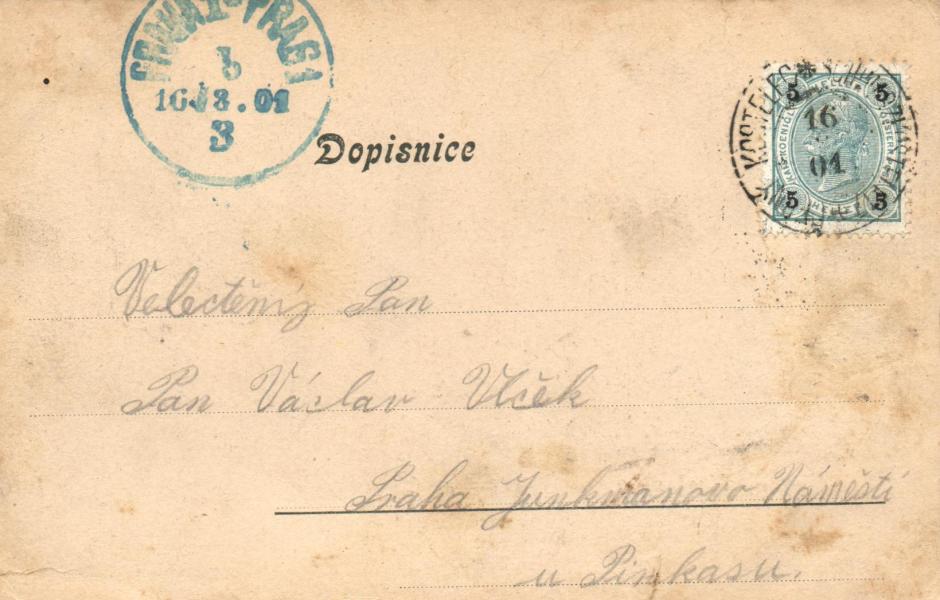 PRAHA 1 PRAG 1
1
b
16. 8. 01
3
Dopisnice
KOSTELEC
16
01
5 5
5 5
Velectěný Pan
Pan Václav Vlček
Praha Junkmanovo Náměstí
u Pinkasu.